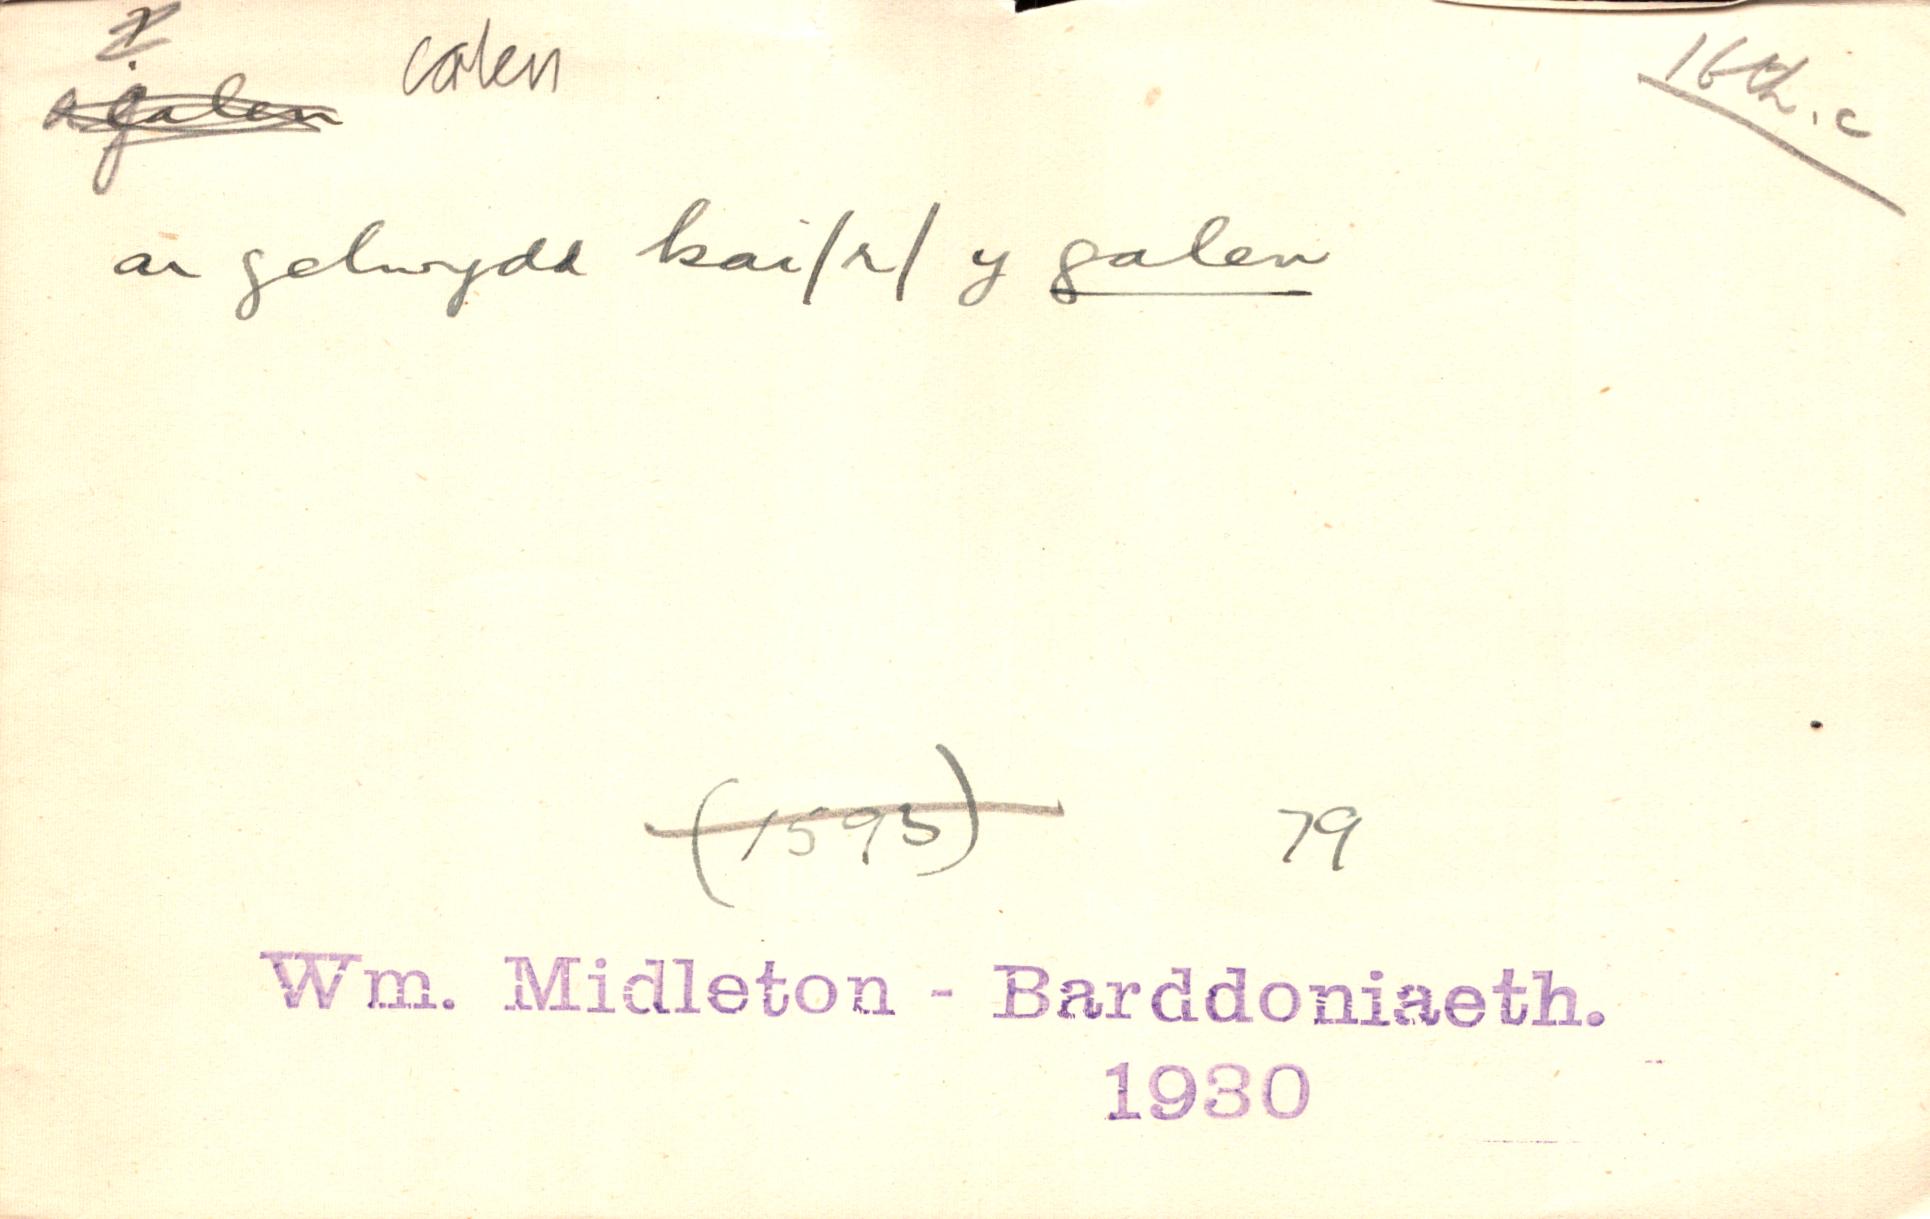 ? calen 16th.c
galen
ar gelwydd kai/r/ y galen
(1593) 79
Wm. Midleton - Barddoniaeth.
1930